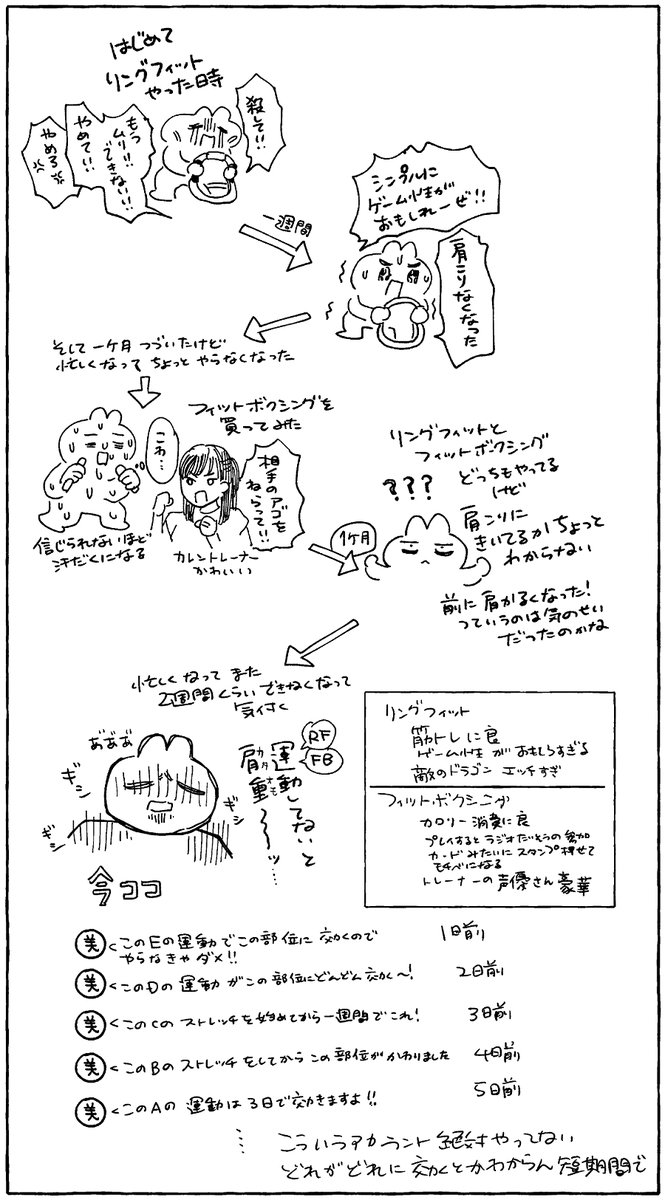 はじめて
リングフィット
やった日時
殺して!!
もう
ムリ!!
できない!!
やめて!!
やめろ
一週間
シンプルに
ゲーム性が
おもしれーぜ!!
肩こりなくなった
そして一ケ月つづいたけど
忙しくなってちょっとやらなくなった
フィットボクシングを
買ってみた
こわ…
相手のアゴを
ねらって!!
信じられないほど
汗だくになる
カレントレーナー
かわいい
1ケ月
リングフィットと
フィットボクシング
どっちもやってる
けど
???
肩こりに
きいてるかちょっと
わからない
前に肩かるくなった!
っていうのは気のせい
だったのかな
忙しくなってまた
2週間くらいできなくなって
気付く
RF
FB
運動してないと
肩重〜〜ッ…
カタ
オモ
あ゛あ゛あ゛
ギシ
ギシ
ギシ
今ココ
リングフィット
筋トレに良
ゲーム性がおもしろすぎる
敵のドラゴンエッチすぎ
フィットボクシニング
カロリー消費に良
プレイするとラジオたいそうの参加
カードみたいにスタンプ押せて
モチベになる
トレーナーの声優さん豪華
美<このEの運動でこの部位に効くので
やらなきゃダメ!! 1日前
美<このDの運動がこの部位にどんどん効く〜! 2日前
美<このCのストレッチを始めてから一週間でこれ! 3日前
美<このBのストレッチをしてからこの部位がかわりました 4日前
美<このAの運動は3日で効きますよ!! 5日前
こういうアカウント絶対やってない
どれがどれに効くとかわからん短期間で